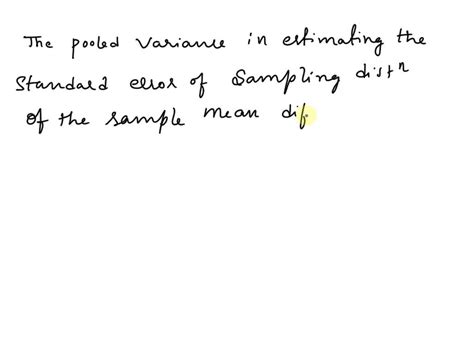 The pooled variance in estimating the
Standard error of Sampling distⁿ
of the sample mean dif